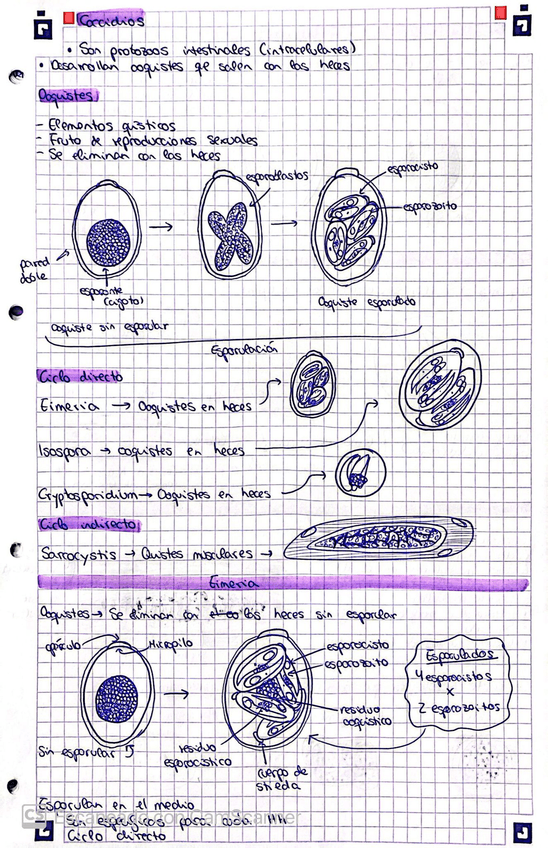 Coccidios
• Son protozoos intestinales (intracelulares)
• Desarrollan ooquistes qe salen con las heces
Ooquistes
- Elementos quísticos
- Fruto de reproducciones sexuales
- Se eliminan con las heces
esporoblastos
esporocisto
esporozoito
pared doble
esporonte (cigoto)
Ooquiste esporulado
ooquiste sin esporular
Esporulación
Ciclo directo
Eimeria → Ooquistes en heces
Isospora → ooquistes en heces
Cryptosporidium → Ooquistes en heces
Ciclo indirecto
Sarcocystis → Quistes musculares →
Eimeria
Ooquistes → Se eliminan con las heces sin esporular
opérculo
Micropilo
esporocisto
esporozoito
Esporulados
4 esporocistos
x
2 esporozoitos
residuo ooquístico
Sin esporular
residuo esporocístico
cuerpo de stieda
Esporulan en el medio
Son específicos para cada HH
CS Escaneado con CamScanner
Ciclo directo